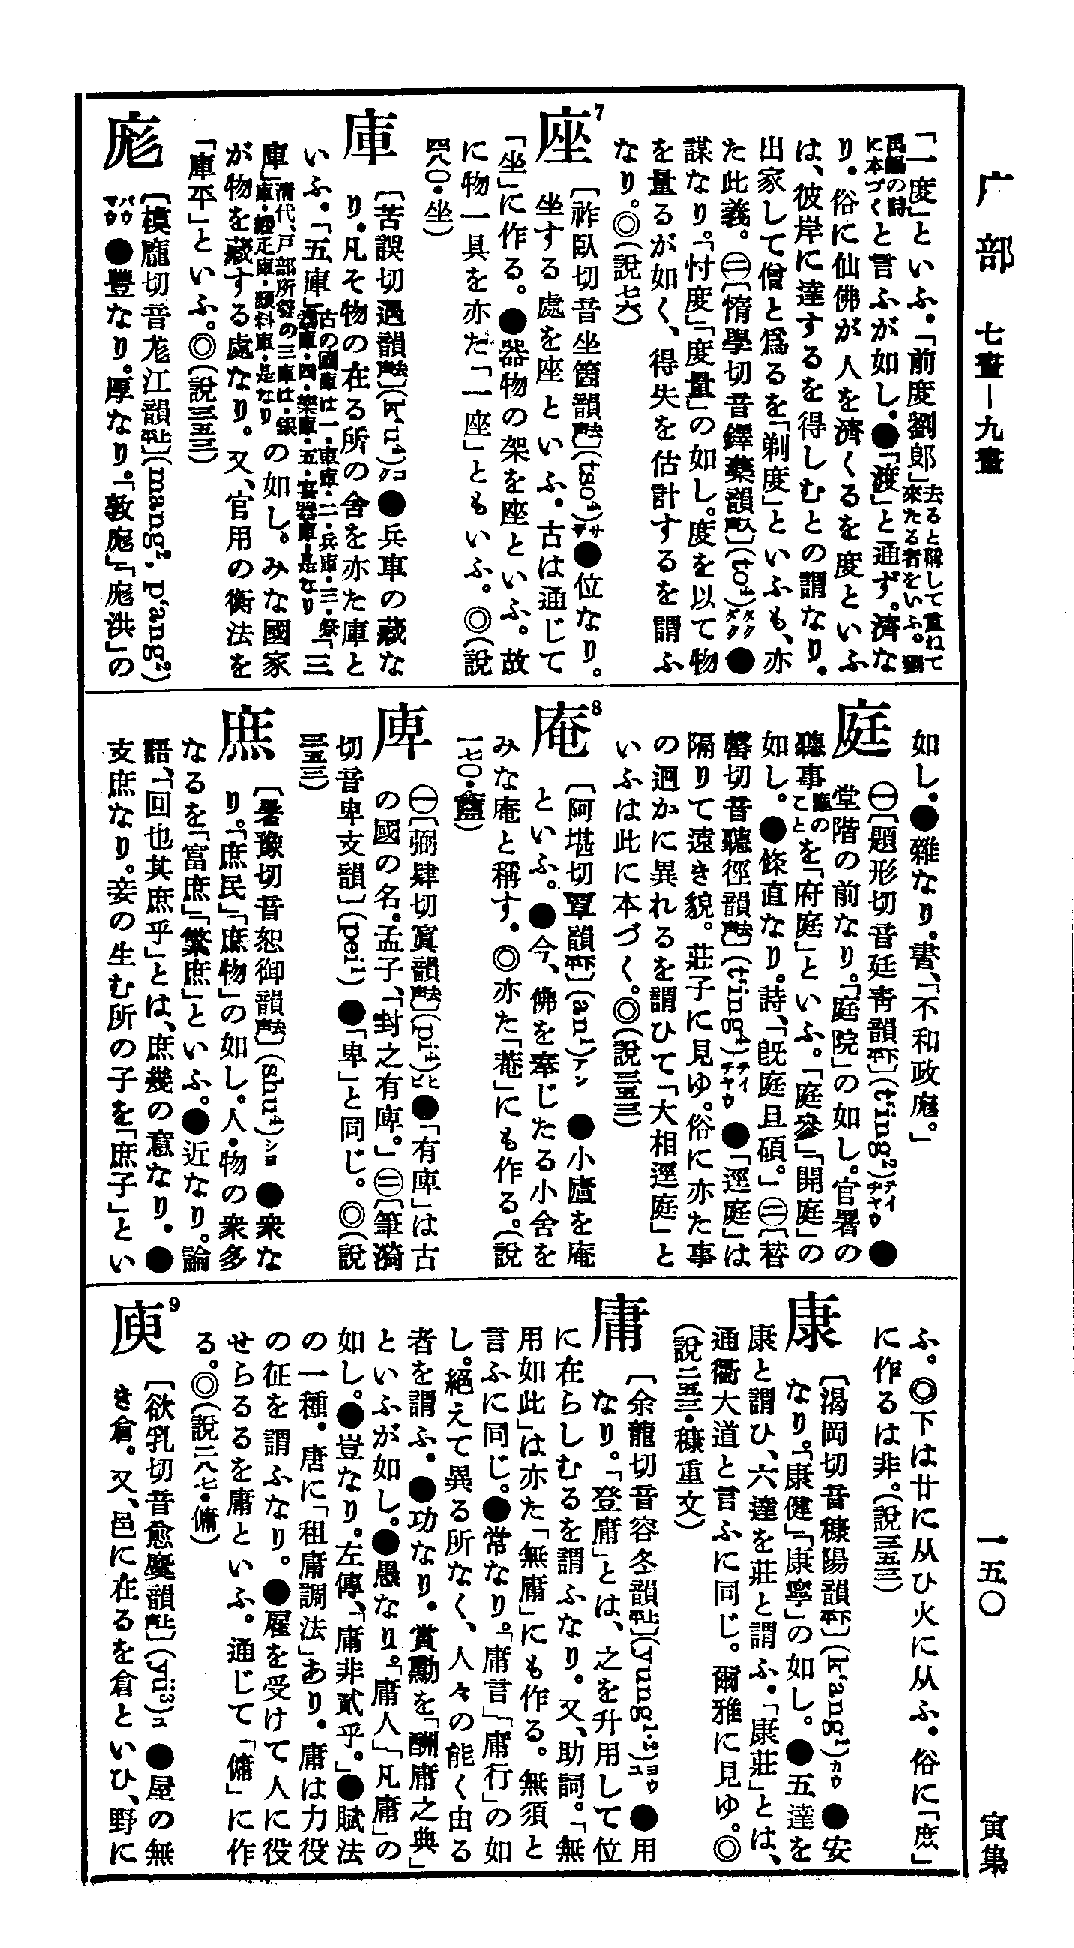 广部 七畫－九畫 一五〇 寅集
「一度」といふ。「前度劉郎」去ると稱して重ねて來たる者をいふ。劉
禹錫の詩に本づくと言ふが如し。●「渡」と通ず。濟な
り。俗に仙佛が人を濟くるを度といふ
は、彼岸に達するを得しむとの謂なり。
出家して僧と爲るを「剃度」といふも、亦
た此義。㊁〔惰學切音鐸藥韻入聲〕(to⁴)タクダク●
謀なり。「忖度」「度量」の如し。度を以て物
を量るが如く、得失を估計するを謂ふ
なり。◎(說七六)
座7〔祚臥切音坐箇韻去聲〕(tso⁴)サザ●位なり。
坐する處を座といふ。古は通じて
「坐」に作る。●器物の架を座といふ。故
に物一具を亦た「一座」ともいふ。◎(說
四八〇・坐)
庫〔苦誤切遇韻去聲〕(k'u⁴)クコ●兵車の藏な
り。凡そ物の在る所の舍を亦た庫と
いふ。「五庫」古の國庫は一・車庫・二・兵庫・三・祭器庫・四・樂庫・五・宴器庫・是なり「三
庫」清代、戶部所管の三庫は・銀庫・緞疋庫・顏料庫・是なりの如し。みな國家
が物を藏する處なり。又、官用の衡法を
「庫平」といふ。◎(說三五三)
庬〔模龐切音尨江韻平上〕(mang², p'ang²)
バウマウ●豐なり。厚なり。「敦庬」「庬洪」の
如し。●雜なり。書、「不和政庬。」
庭㊀〔題形切音廷靑韻下平〕(t'ing²)テイチヤウ●
堂階の前なり。「庭院」の如し。官署の
聽事をことを「府庭」といふ。「庭參」「開庭」の
如し。●條直なり。詩、「旣庭且碩。」㊁〔替
罄切音聽徑韻去聲〕(t'ing⁴)テイチヤウ●「逕庭」は
隔りて遠き貌。莊子に見ゆ。俗に亦た事
の迥かに異れるを謂ひて「大相逕庭」と
いふは此に本づく。◎(說三五三)
庵8〔阿堪切覃韻下平〕(an¹)アン●小廬を庵
といふ。●今、佛を奉じたる小舍を
みな庵と稱す。◎亦た「菴」にも作る。(說
一七〇・盦)
庳㊀〔彌肆切寘韻去聲〕(pi⁴)ヒビ●「有庳」は古
の國の名。孟子、「封之有庳。」㊁〔筆漪
切音卑支韻〕(pei¹)●「卑」と同じ。◎(說
三五三)
庶〔暑豫切音恕御韻去聲〕(shu⁴)シヨ●衆な
り。「庶民」「庶物」の如し。人・物の衆多
なるを「富庶」「繁庶」といふ。●近なり。論
語、「回也其庶乎」とは、庶幾の意なり。●
支庶なり。妾の生む所の子を「庶子」とい
ふ。◎下は廿に从ひ火に从ふ。俗に「庶」
に作るは非。(說三五三)
康〔渴岡切音穅陽韻下平〕(k'ang¹)カウ●安
なり。「康健」「康寧」の如し。●五達を
康と謂ひ、六達を莊と謂ふ。「康莊」とは、
通衢大道と言ふに同じ。爾雅に見ゆ。◎
(說二五三・穅重文)
庸〔余龍切音容冬韻上平〕(yung¹·²)ヨウユ●用
なり。「登庸」とは、之を升用して位
に在らしむるを謂ふなり。又、助詞。「無
用如此」は亦た「無庸」にも作る。無須と
言ふに同じ。●常なり。「庸言」「庸行」の如
し。絕えて異る所なく、人々の能く由る
者を謂ふ。●功なり。賞勳を「酬庸之典」
といふが如し。●愚なり。「庸人」「凡庸」の
如し。●豈なり。左傳、「庸非貳乎。」●賦法
の一種。唐に「租庸調法」あり。庸は力役
の征を謂ふなり。●雇を受けて人に役
せらるるを庸といふ。通じて「傭」に作
る。◎(說二八七・傭)
庾9〔欲乳切音愈麌韻上聲〕(yü³)ユ●屋の無
き倉。又、邑に在るを倉といひ、野に